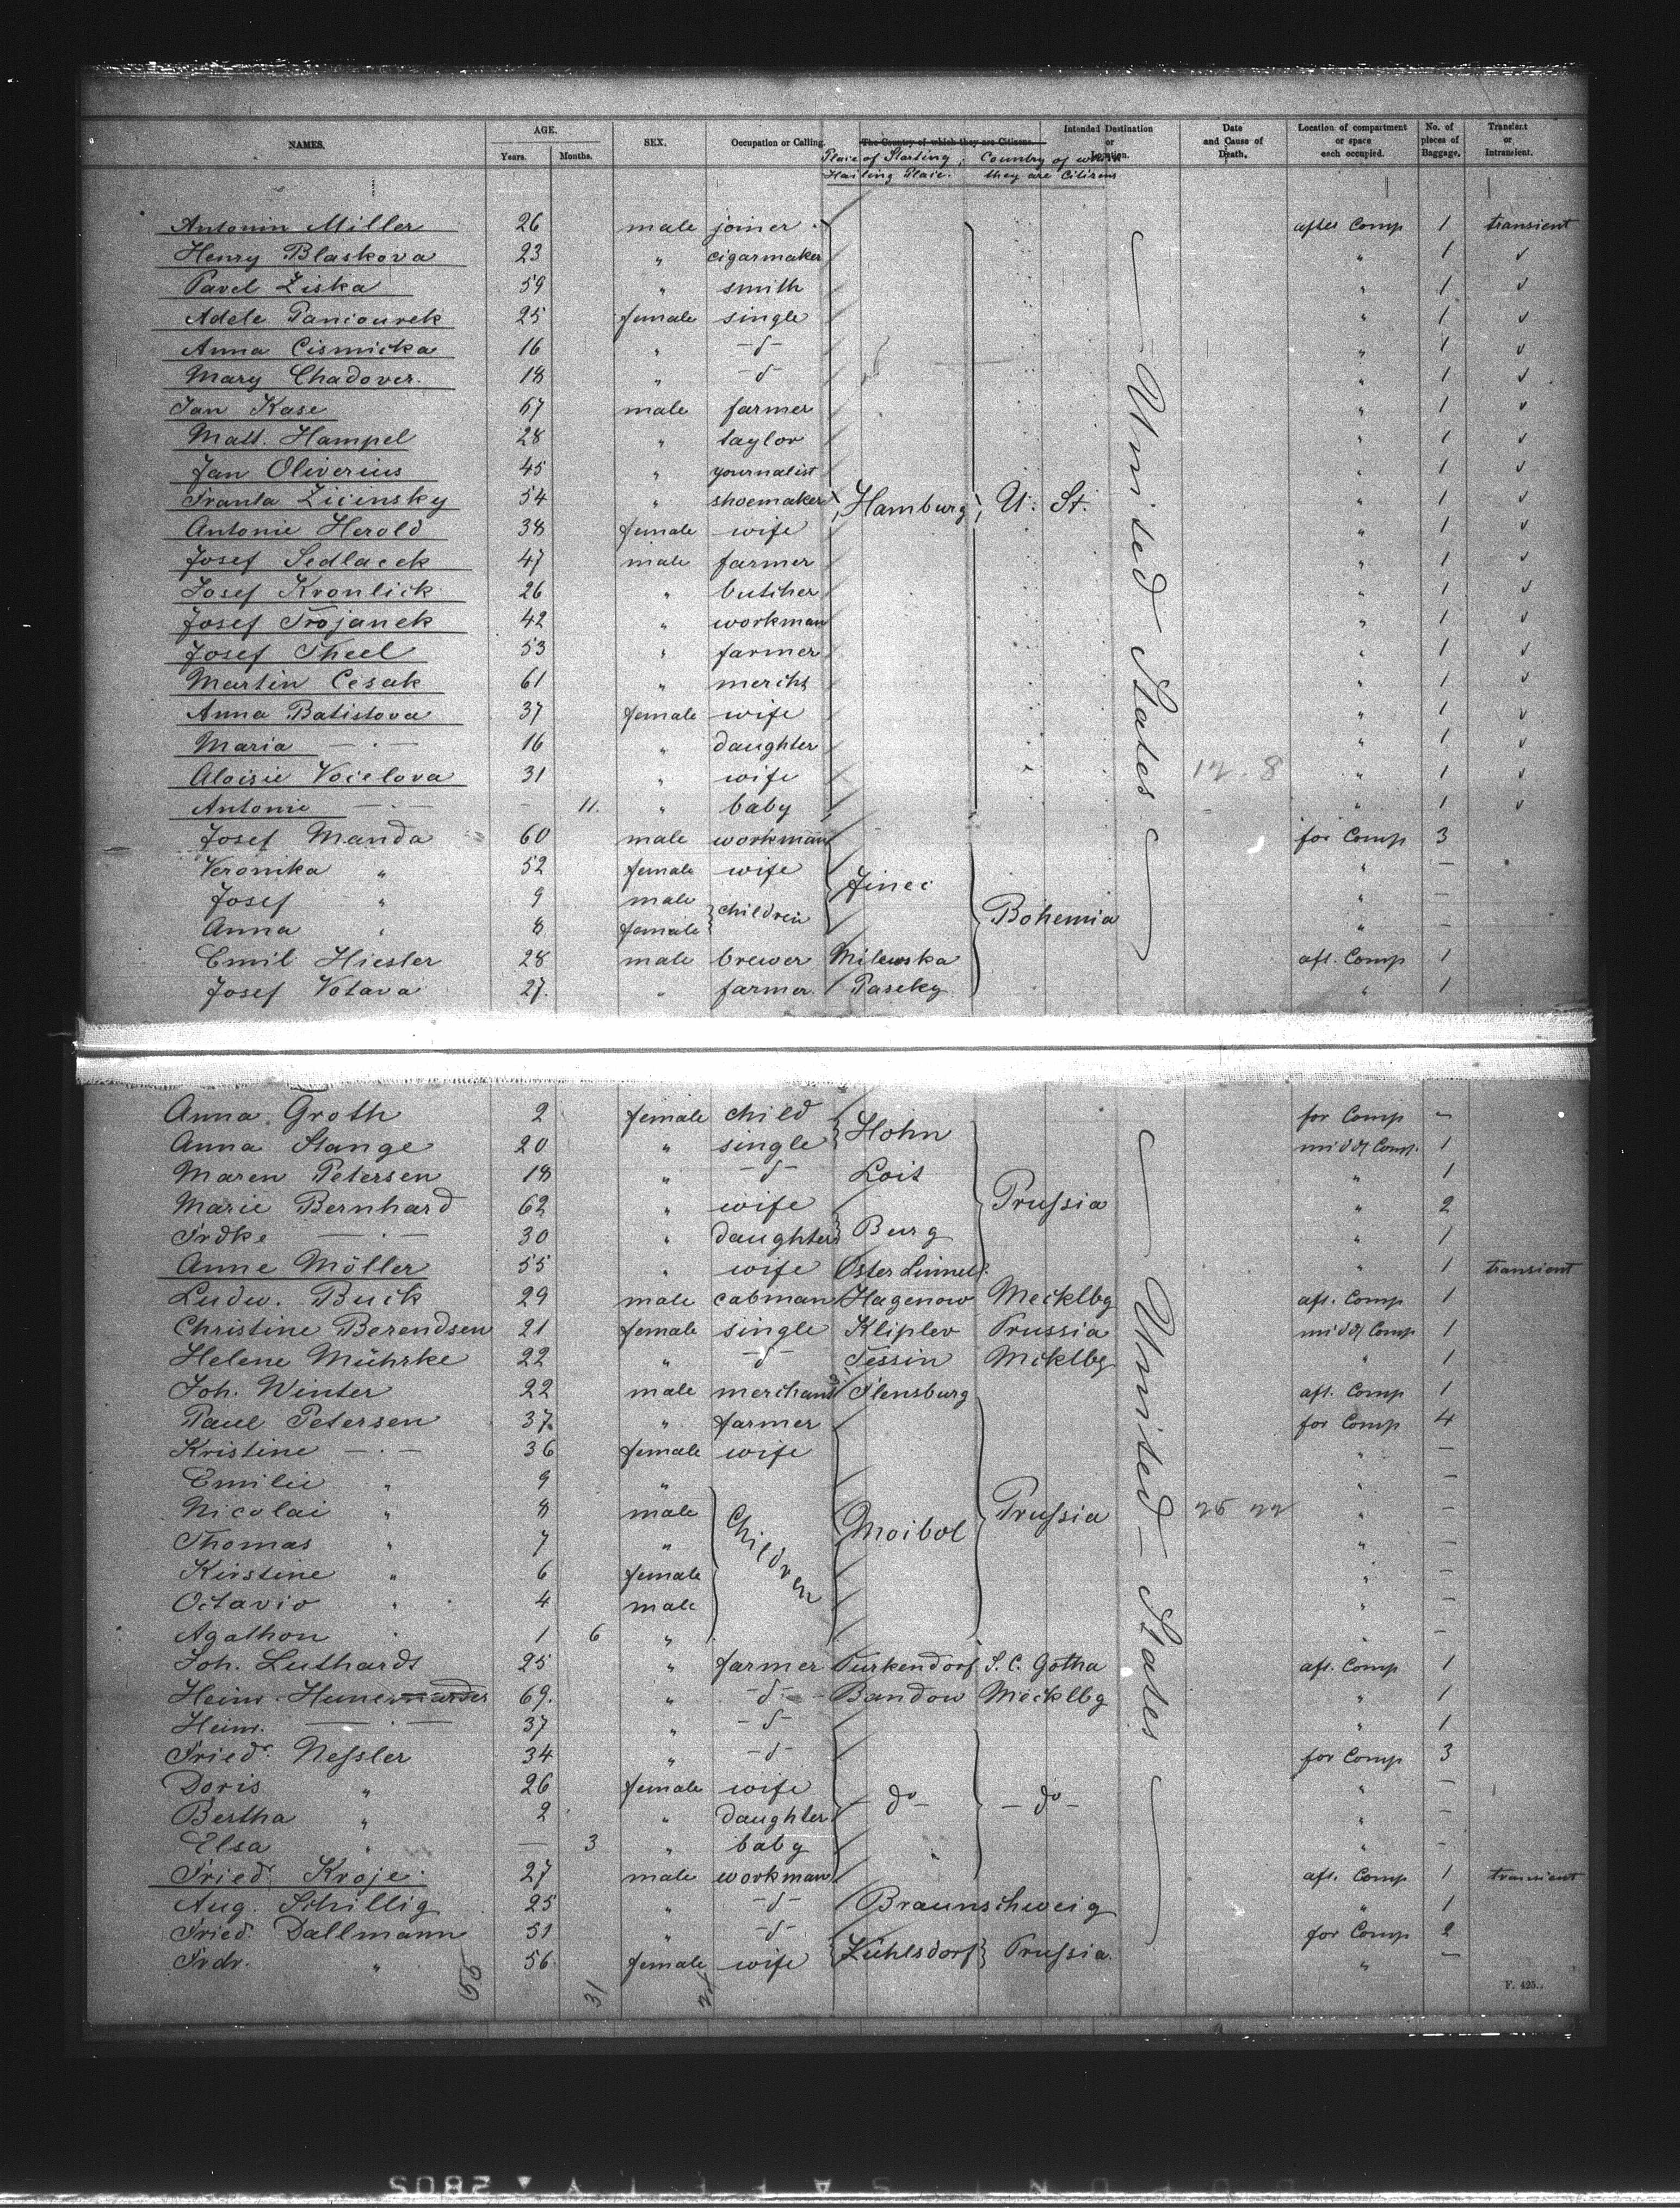 NAMES. AGE. Years. Months. SEX. Occupation or Calling. The Country of which they are Citizens. Intended Destination or Location. Date and Cause of Death. Location of compartment or space each occupied. No. of pieces of Baggage. Transient or Intransient.
Place of Starting, Country of which
Hailing Place. they are Citizens
Antonin Miller 26 male joiner after Comp 1 transient
Henry Blaskova 23 " cigarmaker " 1 ✓
Pavel Ziska 59 " smith " 1 ✓
Adele Paniourek 25 female single " 1 ✓
Anna Cismicka 16 " -d- " 1 ✓
Mary Chadover. 18 " -d- " 1 ✓
Jan Kase 67 male farmer " 1 ✓
Matt. Hampel 28 " taylor " 1 ✓
Jan Oliverius 45 " yournalist " 1 ✓
Franta Zicinsky 54 " shoemaker Hamburg U. St. " 1 ✓
Antonie Herold 38 female wife " 1 ✓
Josef Sedlacek 47 male farmer " 1 ✓
Josef Kronlick 26 " butcher " 1 ✓
Josef Trojanek 42 " workman " 1 ✓
Josef Theel 53 " farmer " 1 ✓
Martin Cesak 61 " mercht " 1 ✓
Anna Batistova 37 female wife " 1 ✓
Maria — · — 16 " daughter " 1 ✓
Aloisie Vocelova 31 " wife 12. 8 " 1 ✓
Antonie — · — - 11. " baby " 1 ✓
United States
Josef Manda 60 male workman for Comp 3
Veronika " 52 female wife Jinec " —
Josef " 9 male children " —
Anna " 8 female Bohemia " —
Emil Hiesler 28 male brewer Milewska aft. Comp 1
Josef Votava 27. " farmer Paseky " 1
Anna Groth 2 female child Hohn for Comp -
Anna Stange 20 " single middl Comp. 1
Maren Petersen 18 " -d- Loit " 1
Marie Bernhard 62 " wife Prussia " 2
Frdke — · — 30 " daughter Burg " 1
Anne Möller 55 " wife Oster Linnet " 1 transient
Ludw. Buck 29 male cabman Hagenow Mecklbg aft. Comp 1
Christine Berendsen 21 female single Kliplev Prussia middl Comp 1
Helene Mührke 22 " -d- Tessin Mcklbg " 1
Joh. Winter 22 male merchant Flensburg aft. Comp 1
Paul Petersen 37. " farmer for Comp 4
Kristine — · — 36 female wife " —
Emilie " 9 " " —
Nicolai " 8 male Children Moibol Prussia 25 22 " —
Thomas " 7 " " —
Kirstine " 6 female " —
Octavio " 4 male " —
Agathon " 1 6 " " —
United States
Joh. Luthardt 25 " farmer Turkendorf S. C. Gotha aft. Comp 1
69. " -d- Bandow Mecklbg " 1
Heinr. — · — 37 " -d- " 1
Friedr. Nessler 34 " -d- for Comp 3
Doris " 26 female wife -do- -do- " —
Bertha " 2 " daughter " —
Elsa " — 3 " baby " —
Friedr. Kroje 27 male workman aft. Comp 1 transient
Aug. Schillig 25 " -d- Braunschweig " 1
Fried. Dallmann 51 " -d- for Comp 2
Frdr. " 56 female wife Zühlsdorf Prussia. " —
55 31
F. 425..